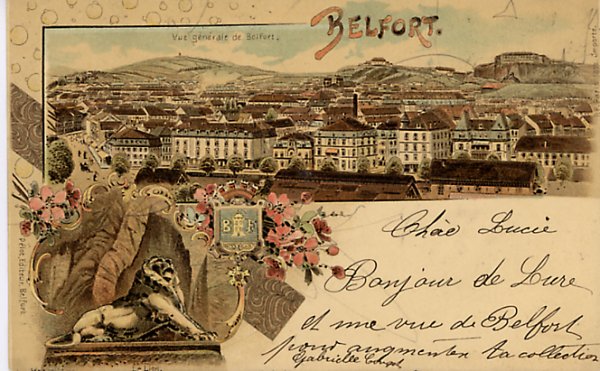 BELFORT.
Vue générale de Belfort.
B F
Chèe Lucie
Bonjour de Lure
et une vue de Belfort
pour augmenter ta collection
Gabrielle
Le Lion.
Editeur, Belfort